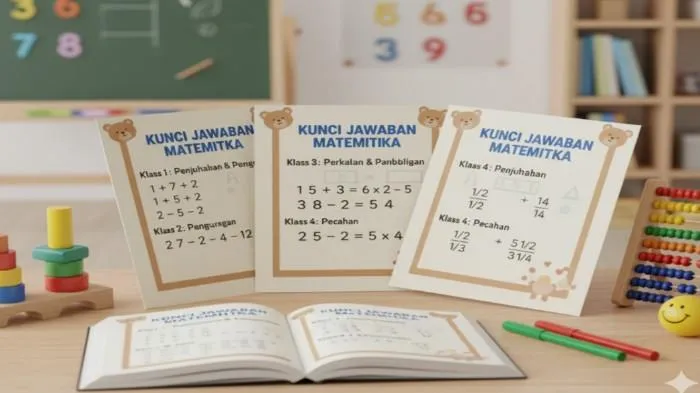 3 6
7 8
5
6 9
KUNCI JAWABAN
MATEMITIKA
Klass 1: Penjuhahan & Pengu
1 + 7 + 2
1 + 5 + 2
2 - 5 - 2
Klass 2: Pengursgan
2 7 - 2 - 4 - 12
KUNCI JAWABAN
MATEMITIKA
Klass 3: Perkalan & Panbbligan
1 5 + 3 = 6 × 2 - 5
3 8 - 2 = 5 4
Klass 4: Pecahan
2 5 - 2 = 5 × 4
KUNCI JAWABAN
MATEMITKA
Klass 4: Penjuhahan
1/2
1/2
+ 14
14
Klass 4: Pecahan
1/2
1/3
+ 5 1/2
3 1/4
KUNCI JAWABAN
KUNCI JAWABAN